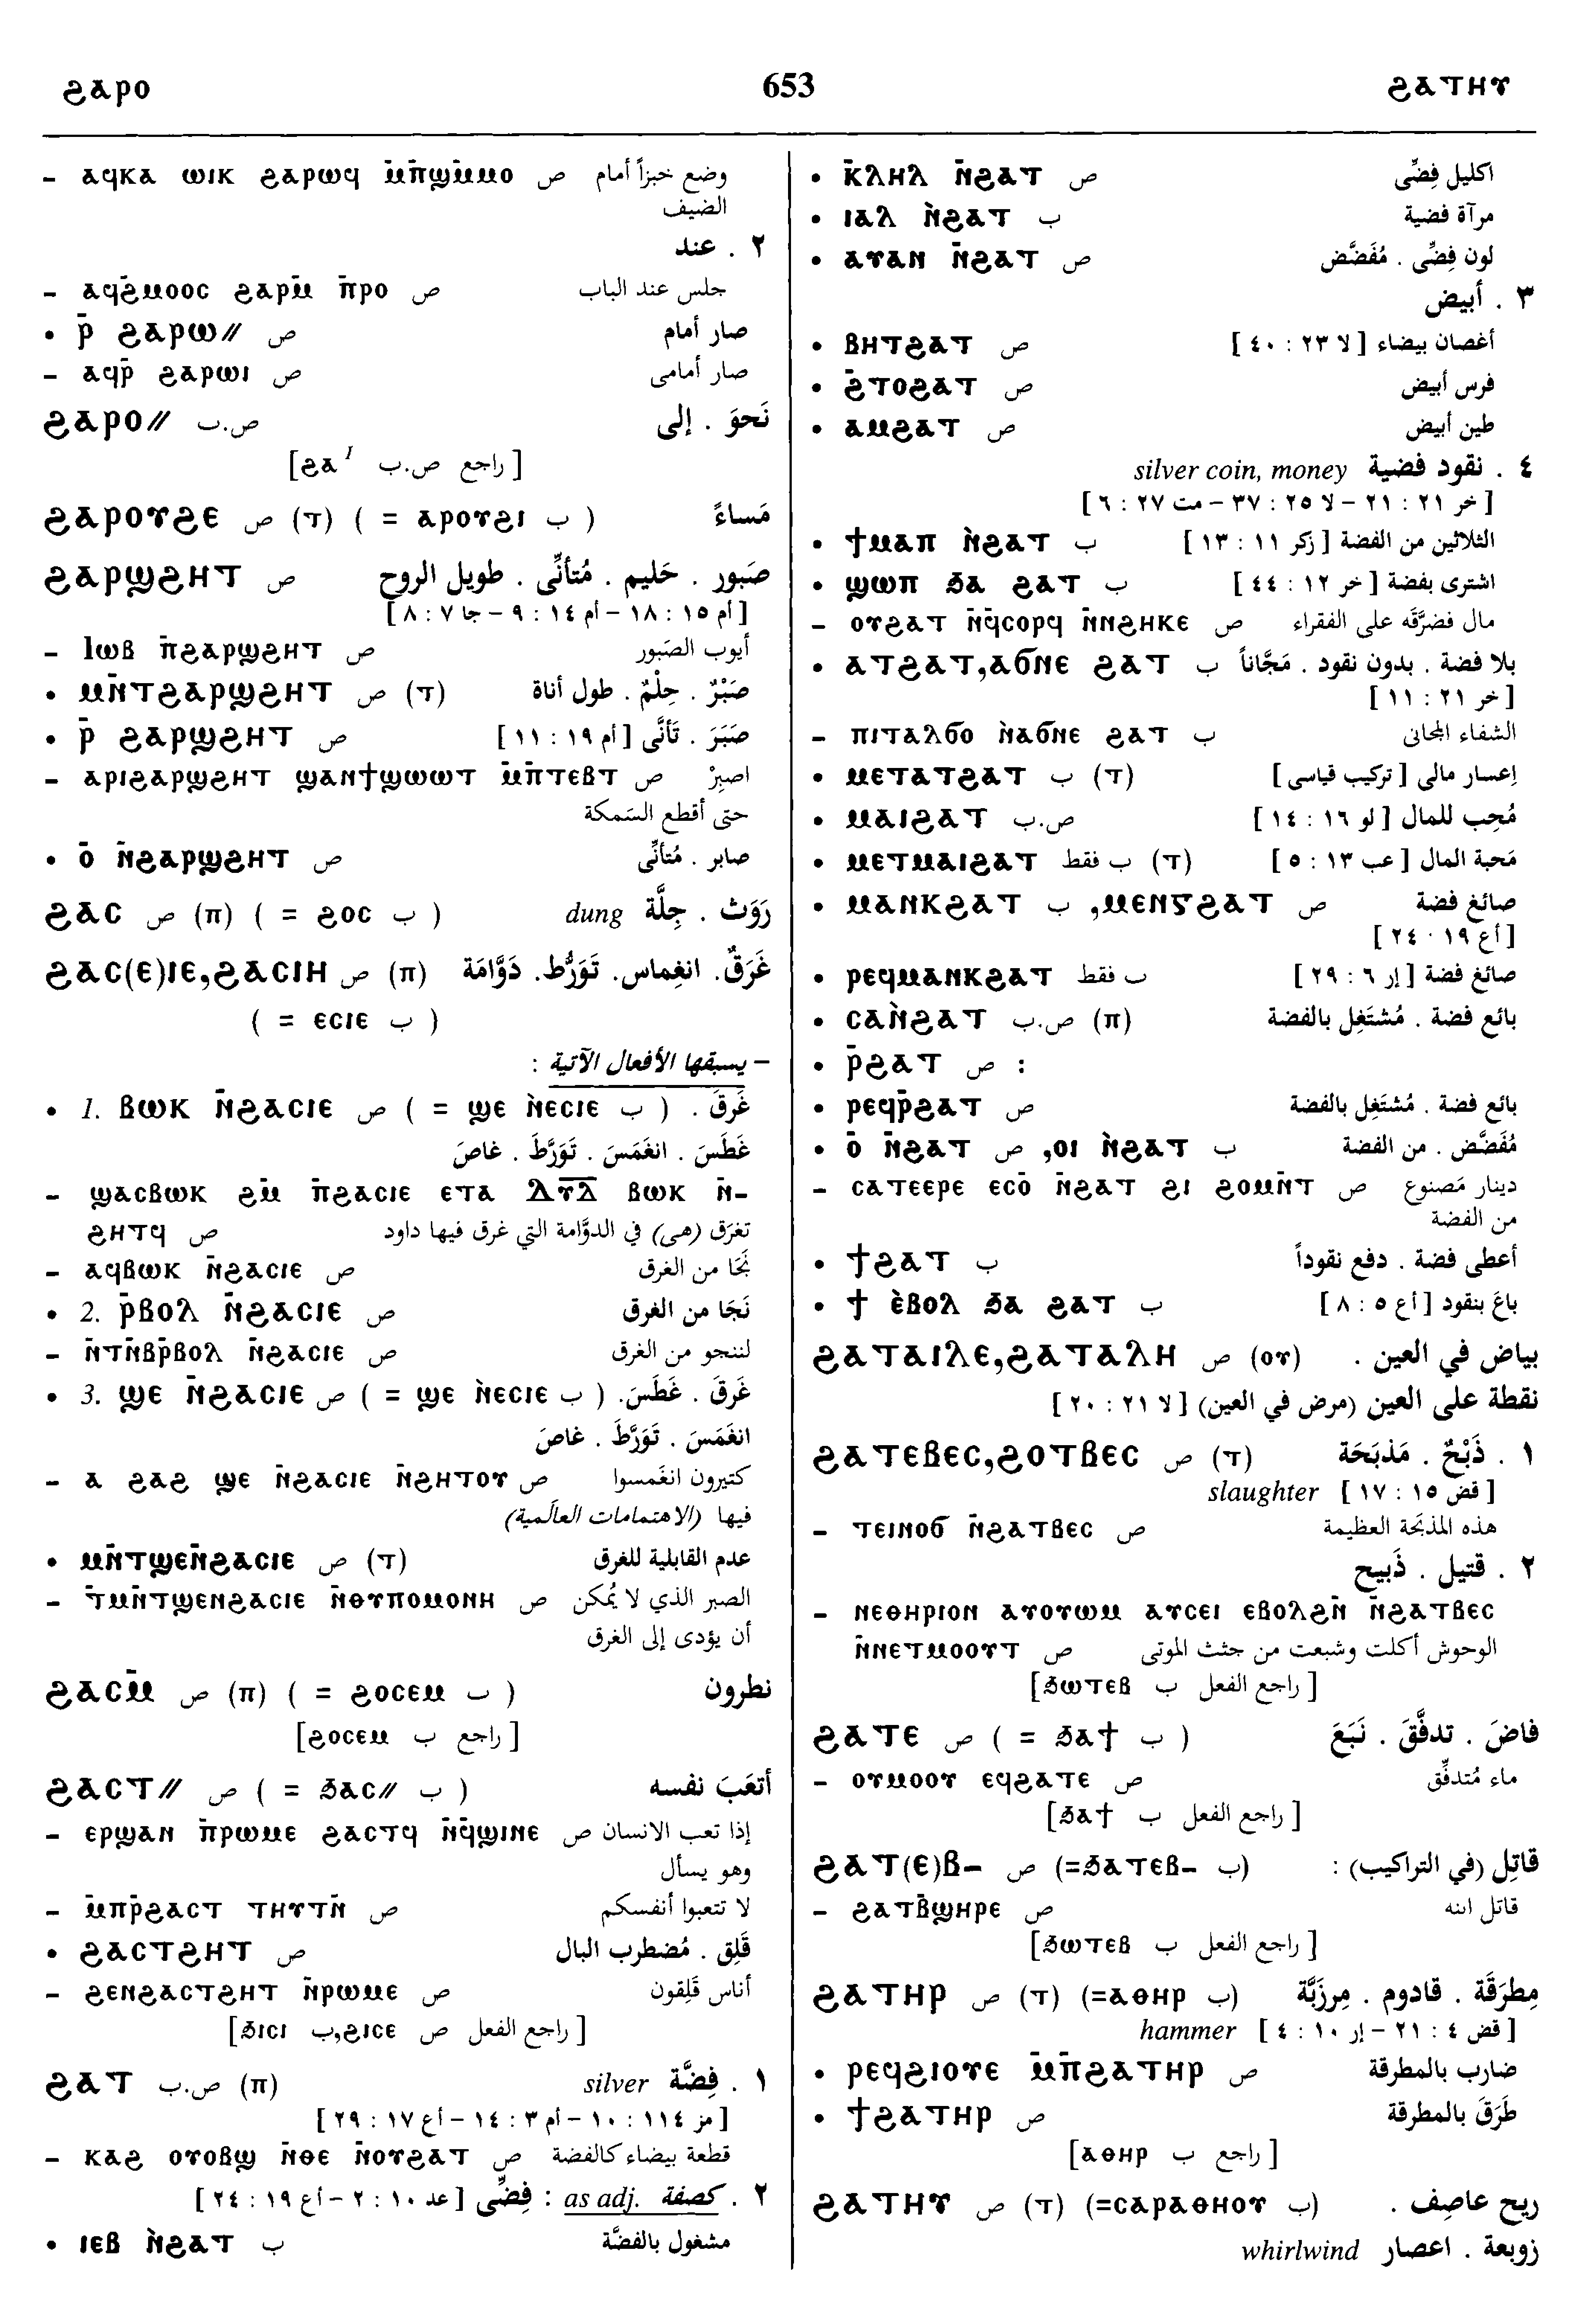 ϩⲁⲣⲟ 653 ϩⲁⲧⲏⲩ
– ⲁϥⲕⲁ ⲱⲓⲕ ϩⲁⲣⲱϥ ⲙ̄ⲡ̄ϣⲙ̄ⲙⲟ ص وضع خبزاً أمام
الضيف
٢ . عند
– ⲁϥϩ̄ⲙⲟⲟⲥ ϩⲁⲣⲙ̄ ⲡ̄ⲣⲟ ص جلس عند الباب
• ⲣ̄ ϩⲁⲣⲱ// ص صار أمام
– ⲁϥⲣ̄ ϩⲁⲣⲱⲓ ص صار أمامى
ϩⲁⲣⲟ// ص.ب نَحوَ . إلى
[ راجع ص.ب ϩⲁ ᴵ]
ϩⲁⲣⲟⲩϩⲉ ص (ⲧ) ( = ⲁⲣⲟⲩϩⲓ ب ) مَساءً
ϩⲁⲣϣϩⲏⲧ ص صَبور . حَليم . مُتأنِّى . طويل الروح
[ أم ١٥ : ١٨ – أم ١٤ : ٩ – جا ٧ : ٨ ]
– Ⲓⲱⲃ ⲡ̄ϩⲁⲣϣϩⲏⲧ ص أيوب الصَبور
• ⲙⲛ̄ⲧϩⲁⲣϣϩⲏⲧ ص (ⲧ) صَبْرٌ . حِلْمٌ . طول أناة
• ⲣ̄ ϩⲁⲣϣϩⲏⲧ ص صَبَرَ . تَأنَّى [ أم ١٩ : ١١ ]
– ⲁⲣⲓϩⲁⲣϣϩⲏⲧ ϣⲁⲛϯϣⲱⲱⲧ ⲙ̄ⲡ̄ⲧⲉⲃⲧ ص اصبِرْ
حتى أقطع السَمكة
• ⲟ̄ ⲛ̄ϩⲁⲣϣϩⲏⲧ ص صابر . مُتأنِّى
ϩⲁⲥ ص (ⲡ) ( = ϩⲟⲥ ب ) رَوَث . جِلَّة dung
ϩⲁⲥ(ⲉ)ⲓⲉ,ϩⲁⲥⲓⲏ ص (ⲡ) غَرَقٌ. انغِماس. تَوَرُّط. دَوَّامَة
( = ⲉⲥⲓⲉ ب )
– يسبقها الأفعال الآتية :
• 1. ⲃⲱⲕ ⲛ̄ϩⲁⲥⲓⲉ ص ( = ϣⲉ ⲛ̀ⲉⲥⲓⲉ ب ) غَرِقَ .
غَطَسَ . انغَمَسَ . تَوَرَّطَ . غاصَ
– ϣⲁⲥⲃⲱⲕ ϩⲙ̄ ⲡ̄ϩⲁⲥⲓⲉ ⲉⲧⲁ ⲇ̅ⲩ̅ⲇ̅ ⲃⲱⲕ ⲛ̄-
ϩⲏⲧϥ ص تغرَق (هى) في الدوَّامة التي غرق فيها داود
– ⲁϥⲃⲱⲕ ⲛ̄ϩⲁⲥⲓⲉ ص نَجَا من الغرق
• 2. ⲣ̄ⲃⲟⲗ ⲛ̄ϩⲁⲥⲓⲉ ص نَجَا من الغرق
– ⲛ̄ⲧⲛ̄ⲃⲣ̄ⲃⲟⲗ ⲛ̄ϩⲁⲥⲓⲉ ص لننجو من الغرق
• 3. ϣⲉ ⲛ̄ϩⲁⲥⲓⲉ ص ( = ϣⲉ ⲛ̀ⲉⲥⲓⲉ ب ) غَرِقَ . غَطَسَ.
انغَمَسَ . تَوَرَّطَ . غاصَ
– ⲁ ϩⲁϩ ϣⲉ ⲛ̄ϩⲁⲥⲓⲉ ⲛ̄ϩⲏⲧⲟⲩ ص كثيرون انغَمسوا
فيها (الاهتمامات العالَمية)
• ⲙⲛ̄ⲧϣⲉⲛ̄ϩⲁⲥⲓⲉ ص (ⲧ) عدم القابلية للغرق
– ⲧ̄ⲙⲛ̄ⲧϣⲉⲛϩⲁⲥⲓⲉ ⲛ̄ⲑⲩⲡⲟⲙⲟⲛⲏ ص الصبر الذي لا يُمكن
أن يؤدى إلى الغرق
ϩⲁⲥⲙ̄ ص (ⲡ) ( = ϩⲟⲥⲉⲙ ب ) نطرون
[ راجع ب ϩⲟⲥⲉⲙ]
ϩⲁⲥⲧ// ص ( = ϧⲁⲥ// ب ) أتعَبَ نفسه
– ⲉⲣϣⲁⲛ ⲡ̄ⲣⲱⲙⲉ ϩⲁⲥⲧϥ ⲛ̄ϥ̄ϣⲓⲛⲉ ص إذا تعب الانسان
وهو يسأل
– ⲙ̄ⲡⲣ̄ϩⲁⲥⲧ ⲧⲏⲩⲧⲛ̄ ص لا تتعبوا أنفسكم
• ϩⲁⲥⲧϩⲏⲧ ص قَلِق . مُضطرب البال
– ϩⲉⲛϩⲁⲥⲧϩⲏⲧ ⲛ̄ⲣⲱⲙⲉ ص أناس قَلِقون
[ راجع الفعل ص ϩⲓⲥⲉ,ب ϧⲓⲥⲓ]
ϩⲁⲧ ص.ب (ⲡ) ١ . فِضَّة silver
[ مز ١١٤ : ١٠ – أم ٣ : ١٤ – أع ١٧ : ٢٩ ]
– ⲕⲁϩ ⲟⲩⲟⲃϣ ⲛ̄ⲑⲉ ⲛ̄ⲟⲩϩⲁⲧ ص قطعة بيضاء كالفضة
٢ . كصفة as adj. : فِضِّى [ عد ١٠ : ٢ – أع ١٩ : ٢٤ ]
• ⲓⲉⲃ ⲛ̀ϩⲁⲧ ب مشغول بالفضَّة
• ⲕ̄ⲗⲏⲗ ⲛ̄ϩⲁⲧ ص اكليل فِضِّى
• ⲓⲁⲗ ⲛ̀ϩⲁⲧ ب مرآة فضية
• ⲁⲩⲁⲛ ⲛ̄ϩⲁⲧ ص لون فِضِّى . مُفَضَّض
٣ . أبيض
• ⲃⲏⲧϩⲁⲧ ص أغصان بيضاء [ لا ٢٣ : ٤٠ ]
• ϩ̄ⲧⲟϩⲁⲧ ص فرس أبيض
• ⲁⲙϩⲁⲧ ص طين أبيض
٤ . نقود فضية silver coin, money
[ خر ٢١ : ٢١ – لا ٢٥ : ٣٧ – مت ٢٧ : ٦ ]
• ϯⲙⲁⲡ ⲛ̀ϩⲁⲧ ب الثلاثين من الفضة [ زكر ١١ : ١٣ ]
• ϣⲱⲡ ϧⲁ ϩⲁⲧ ب اشترى بفضة [ خر ١٢ : ٤٤ ]
– ⲟⲩϩⲁⲧ ⲛ̄ϥ̄ⲥⲟⲣϥ ⲛ̄ⲛϩⲏⲕⲉ ص مال فضرَّقَه على الفقراء
• ⲁⲧϩⲁⲧ,ⲁϭⲛⲉ ϩⲁⲧ ب بلا فضة . بدون نقود . مَجَّاناً
[ خر ٢١ : ١١ ]
– ⲡⲓⲧⲁⲗϭⲟ ⲛ̀ⲁϭⲛⲉ ϩⲁⲧ ب الشفاء المجانى
• ⲙⲉⲧⲁⲧϩⲁⲧ ب (ⲧ) إعسار مالى [ تركيب قياسى ]
• ⲙⲁⲓϩⲁⲧ ص.ب مُحِب للمال [ لو ١٦ : ١٤ ]
• ⲙⲉⲧⲙⲁⲓϩⲁⲧ ب فقط (ⲧ) مَحبة المال [ عب ١٣ : ٥ ]
• ⲙⲁⲛⲕϩⲁⲧ ب ,ⲙⲉⲛϩϩⲁⲧ ص صائغ فضة
[ أع ١٩ : ٢٤ ]
• ⲣⲉϥⲙⲁⲛⲕϩⲁⲧ ب فقط صائغ فضة [ إر ٦ : ٢٩ ]
• ⲥⲁⲛ̀ϩⲁⲧ ص.ب (ⲡ) بائع فضة . مُشتَغِل بالفضة
• ⲣ̄ϩⲁⲧ ص :
• ⲣⲉϥⲣ̄ϩⲁⲧ ص بائع فضة . مُشتَغِل بالفضة
• ⲟ̄ ⲛ̄ϩⲁⲧ ص ,ⲟⲓ ⲛ̀ϩⲁⲧ ب مُفَضَّض . من الفضة
– ⲥⲁⲧⲉⲉⲣⲉ ⲉⲥⲟ̄ ⲛ̄ϩⲁⲧ ϩⲓ ϩⲟⲙⲛ̄ⲧ ص دينار مَصنوع
من الفضة
• ϯϩⲁⲧ ب أعطى فضة . دفع نقوداً
• ϯ ⲉ̀ⲃⲟⲗ ϧⲁ ϩⲁⲧ ب باعَ بنقود [ أع ٥ : ٨ ]
ϩⲁⲧⲁⲓⲗⲉ,ϩⲁⲧⲁⲗⲏ ص (ⲟⲩ) بياض في العين .
نقطة على العين (مرض في العين) [ لا ٢١ : ٢٠ ]
ϩⲁⲧⲉⲃⲉⲥ,ϩⲟⲧⲃⲉⲥ ص (ⲧ) ١ . ذَبْحٌ . مَذبَحَة
slaughter [ قض ١٥ : ١٧ ]
– ⲧⲉⲓⲛⲟϭ ⲛ̄ϩⲁⲧⲃⲉⲥ ص هذه المذبَحَة العظيمة
٢ . قتيل . ذَبيح
– ⲛⲉⲑⲏⲣⲓⲟⲛ ⲁⲩⲟⲩⲱⲙ ⲁⲩⲥⲉⲓ ⲉⲃⲟⲗϩⲛ̄ ⲛ̄ϩⲁⲧⲃⲉⲥ
ⲛ̄ⲛⲉⲧⲙⲟⲟⲩⲧ ص الوحوش أكلت وشبعت من جثث الموتى
[ راجع الفعل ب ϧⲱⲧⲉⲃ]
ϩⲁⲧⲉ ص ( = ϧⲁϯ ب ) فاضَ . تدفَّقَ . نَبَعَ
– ⲟⲩⲙⲟⲟⲩ ⲉϥϩⲁⲧⲉ ص ماء مُتدفِّق
[ راجع الفعل ب ϧⲁϯ]
ϩⲁⲧ(ⲉ)ⲃ– ص (=ϧⲁⲧⲉⲃ– ب) قاتِل (في التراكيب) :
– ϩⲁⲧⲃ̄ϣⲏⲣⲉ ص قاتل ابنه
[ راجع الفعل ب ϧⲱⲧⲉⲃ]
ϩⲁⲧⲏⲣ ص (ⲧ) (=ⲁⲑⲏⲣ ب) مِطرَقَة . قادوم . مِرزَبَّة
hammer [ قض ٤ : ٢١ – إر ١٠ : ٤ ]
• ⲣⲉϥϩⲓⲟⲩⲉ ⲙ̄ⲡ̄ϩⲁⲧⲏⲣ ص ضارب بالمطرقة
• ϯϩⲁⲧⲏⲣ ص طَرَقَ بالمطرقة
[ راجع ب ⲁⲑⲏⲣ]
ϩⲁⲧⲏⲩ ص (ⲧ) (=ⲥⲁⲣⲁⲑⲏⲟⲩ ب) ريح عاصِف .
زوبعة . اعصار whirlwind